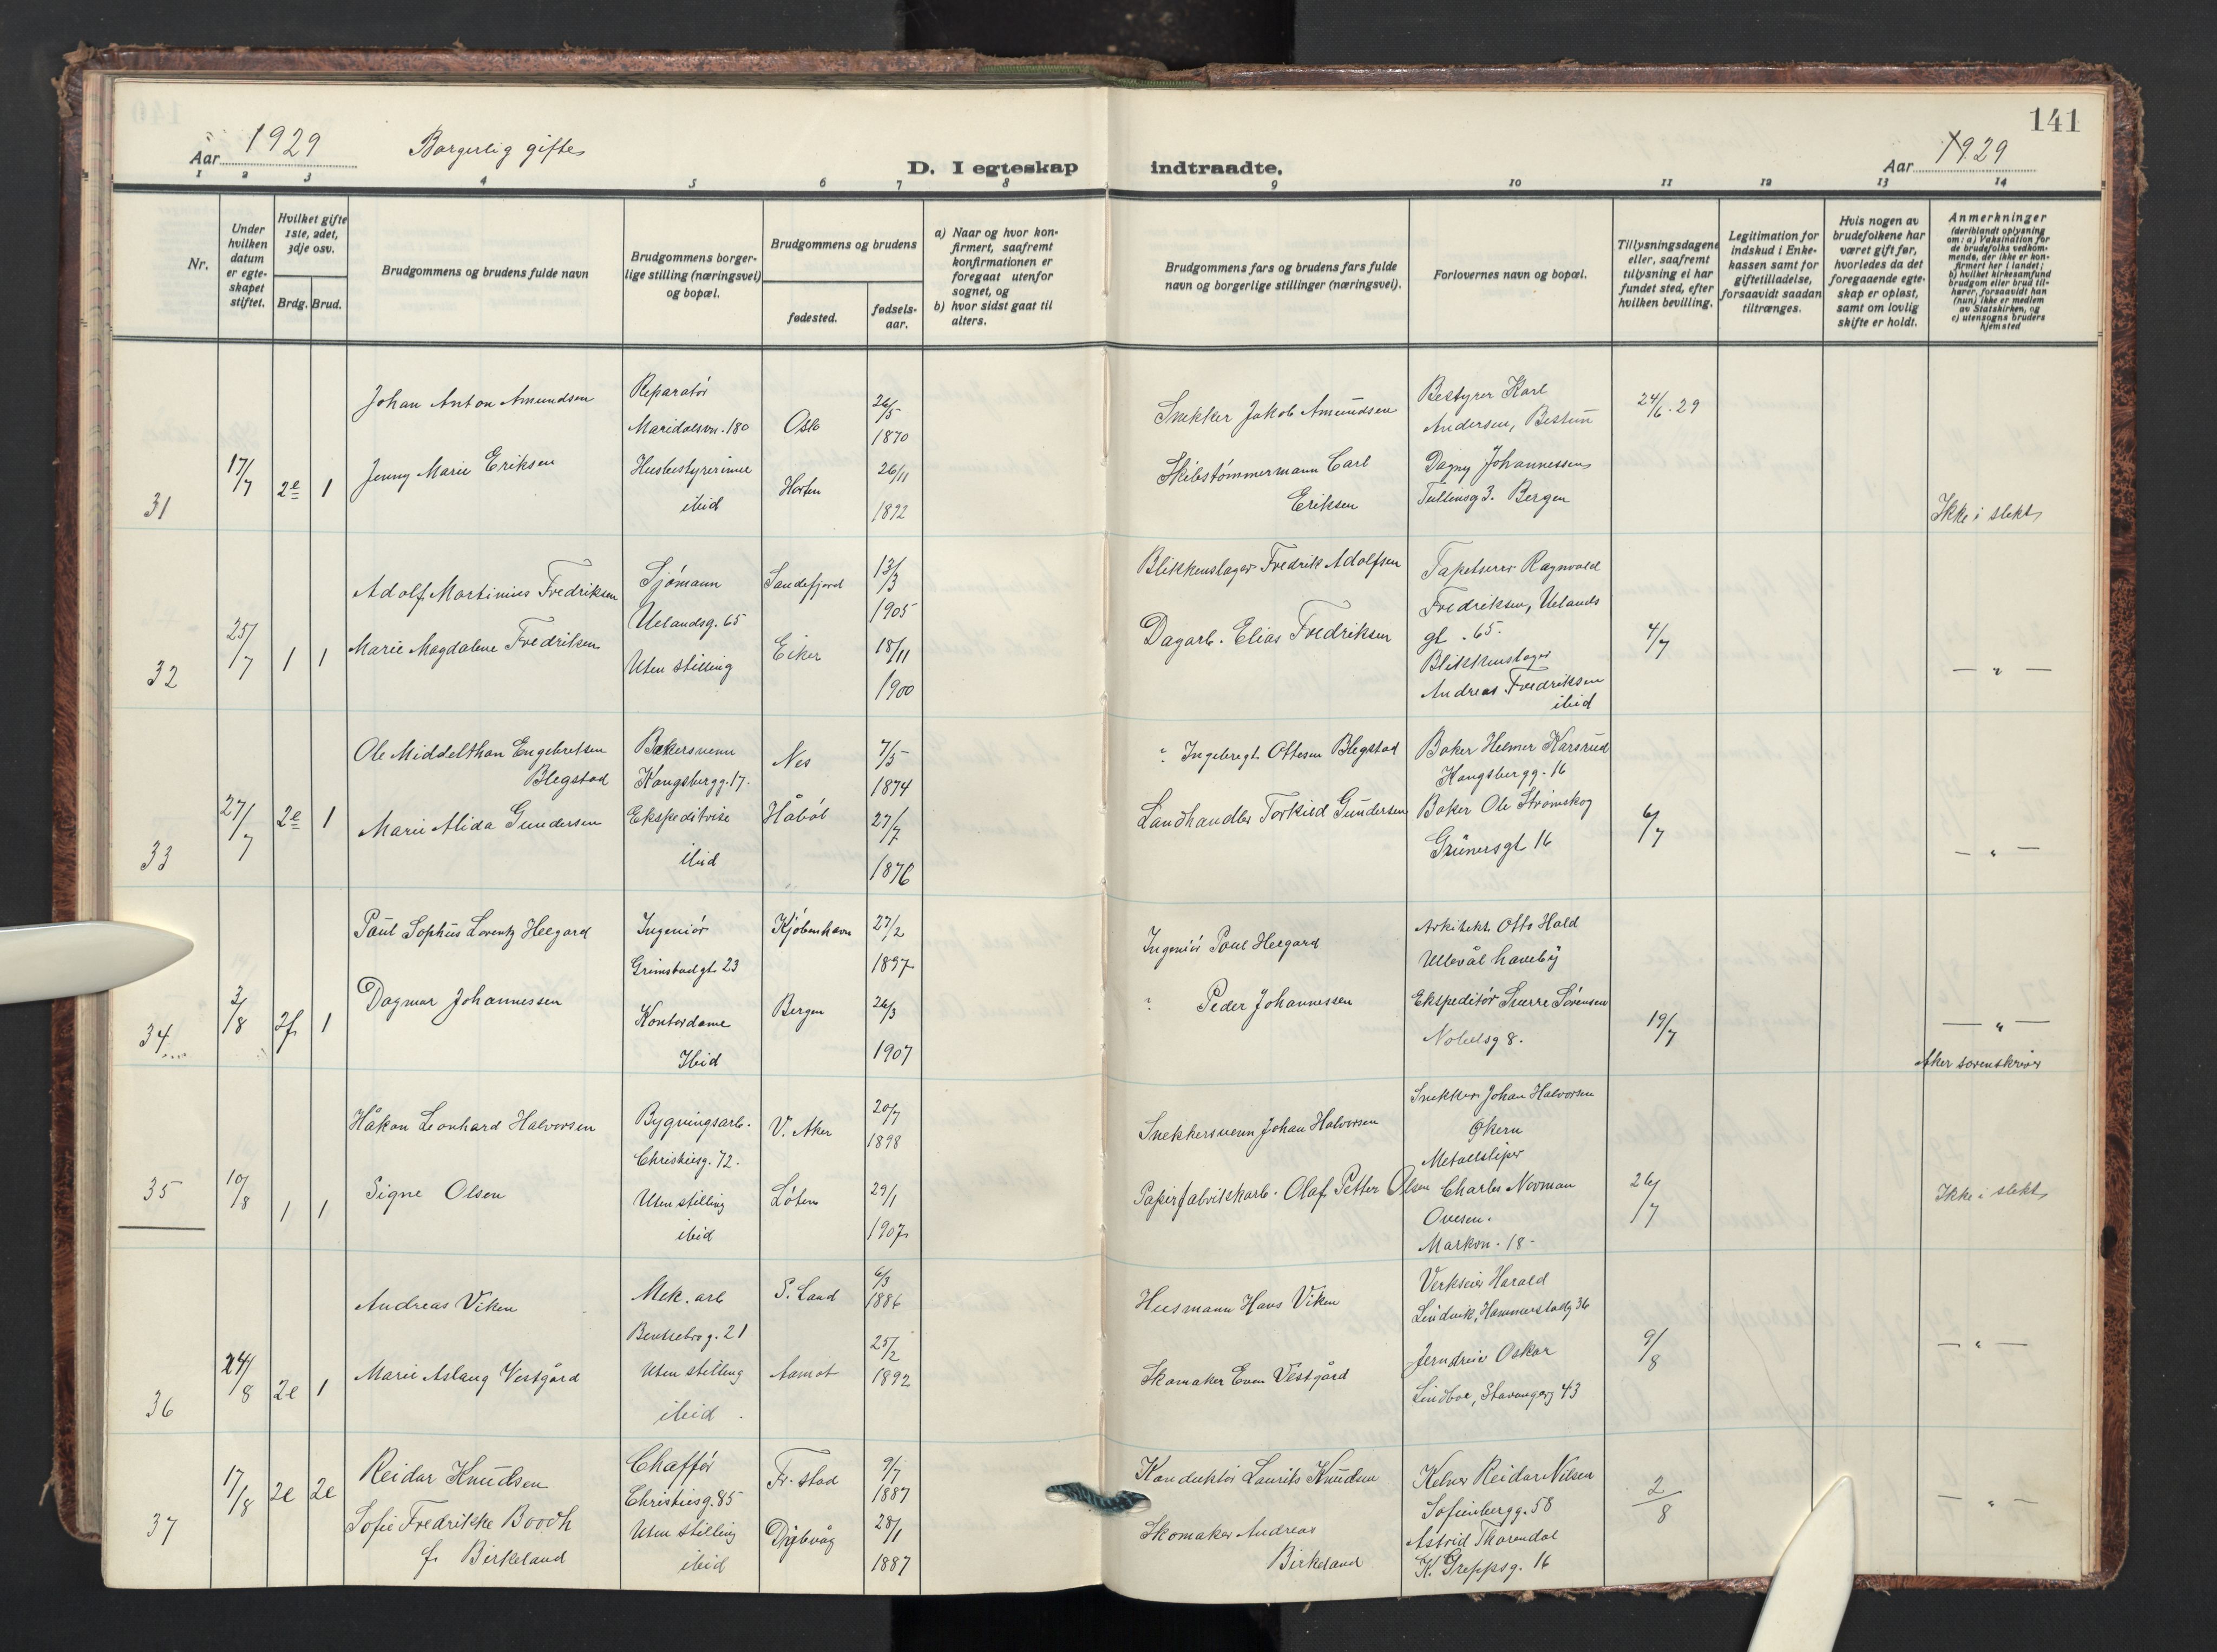 141
Aar 1929 Borgerlig gifte
D. I egteskap indtraadte.
Aar 1929
1 2 3 4 5 6 7 8 9 10 11 12 13 14
Nr.
Under hvilken datum er egteskapet stiftet.
Hvilket gifte 1ste, 2det, 3dje osv.
Brdg. Brud.
Brudgommens og brudens fulde navn
Brudgommens borgerlige stilling (næringsvei) og bopæl.
Brudgommens og brudens
fødested.
fødselsaar.
a) Naar og hvor konfirmert, saafremt konfirmationen er foregaat utenfor sognet, og
b) hvor sidst gaat til alters.
Brudgommens fars og brudens fars fulde navn og borgerlige stillinger (næringsvei).
Forlovernes navn og bopæl.
Tillysningsdagene eller, saafremt tillysning ei har fundet sted, efter hvilken bevilling.
Legitimation for indskud i Enkekassen samt for giftetilladelse, forsaavidt saadan tiltrænges.
Hvis nogen av brudefolkene har været gift før, hvorledes da det foregaaende egteskap er opløst, samt om lovlig skifte er holdt.
Anmerkninger
(deriblandt oplysning om: a) Vaksination for de brudefolks vedkommende, der ikke er konfirmert her i landet;
b) hvilket kirkesamfund brudgom eller brud tilhører, forsaavidt han (hun) ikke er medlem av Statskirken, og
c) utensogns bruders hjemsted
31 17/7 2e 1
Johan Anton Amundsen
Reparatör
Maridalsvn. 180
Oslo
26/5
1870
Snekker Jakob Amundsen
Bestyrer Karl
Andersen, Bestun
24/6. 29
Jenny Marie Eriksen
Husbestyrerinne
ibid
Horten
26/11
Skibstömmermann Carl
Eriksen
Dagny Johannessen
Tullinsg 3. Bergen
Ikke i slekt
32 25/7 1 1
Adolf Martinius Fredriksen
Sjömann
Uelandsg. 65
Sandefjord
13/3
1905
Blikkenslager Fredrik Adolfsen
Tapetserer Ragnvald
Fredriksen, Uelands
gt. 65.
4/7
Marie Magdalene Fredriksen
Uten stilling
Eiker
18/11
1900
Dagarb. Elias Fredriksen
Blikkenslager
Andreas Fredriksen
ibid
— " —
33 27/7 2e 1
Ole Middelthon Engebretsen
Blegstad
Bakersvenn
Kongsbergg. 17.
Nes
7/5
1874
? Ingebregt Ottesen Blegstad
Baker Helmer Karsrud
Kongsbergg. 16
6/7
Marie Alida Gundersen
Ekspeditrise
ibid
Håböl
27/7
1876
Landhandler Torkild Gundersen
Baker Ole Strömskog
Grünersgt 16
— " —
34 3/8 2f 1
Paul Sophus Lorentz Heegard
Ingeniör
Grimstadgt 23
Kjöbenhavn
27/2
1897
Ingeniör Poul Heegard
Arkitekt Otto Hald
Ullevål haveby
19/7
Dagmar Johannessen
Kontordame
Ibid
Bergen
26/3
1907
? Peder Johannessen
Ekspeditör Sverre Sörensen
Nobelsg 8.
— " —
Aker sorenskriver
35 10/8 1 1
Håkon Leonhard Halvorsen
Bygningsarb.
Christiesg. 72.
V. Aker
20/7
1898
Snekkersvenn Johan Halvorsen
Snekker Johan Halvorsen
Økern
26/7
Signe Olsen
Uten stilling
ibid
Löten
29/1
1907
Papirfabrikkarb. Olaf Petter Olsen
Metallsliper
Charles Norman
Ovesen.
Markvn. 18.
Ikke i slekt
36 24/8 2e 1
Andreas Viken
Mek. arb
Bentsebrog. 21
S. Land
6/3
1886
Husmann Hans Viken
Verkseier Harald
Lindvik, Hammerstadg 36
9/8
Marie Aslaug Vestgård
Uten stilling
ibid.
Aamot
25/2
1892
Skomaker Even Vestgård
Jerndreier Oskar
Lindboe, Stavangerg 43
— " —
37 17/8 2e 2e
Reidar Knudsen
Chafför
Christiesg. 85
Fr. stad
9/7
1887
Konduktör Laurits Knudsen
Kelner Reidar Nilsen
Sofienbergg. 58
2/8
Sofie Fredrikke Boodh
f. Birkeland
Uten stilling
ibid
28/1
1887
Skomaker Andreas
Birkeland
Astrid Thorendal
K. Greppsg. 16
— " —